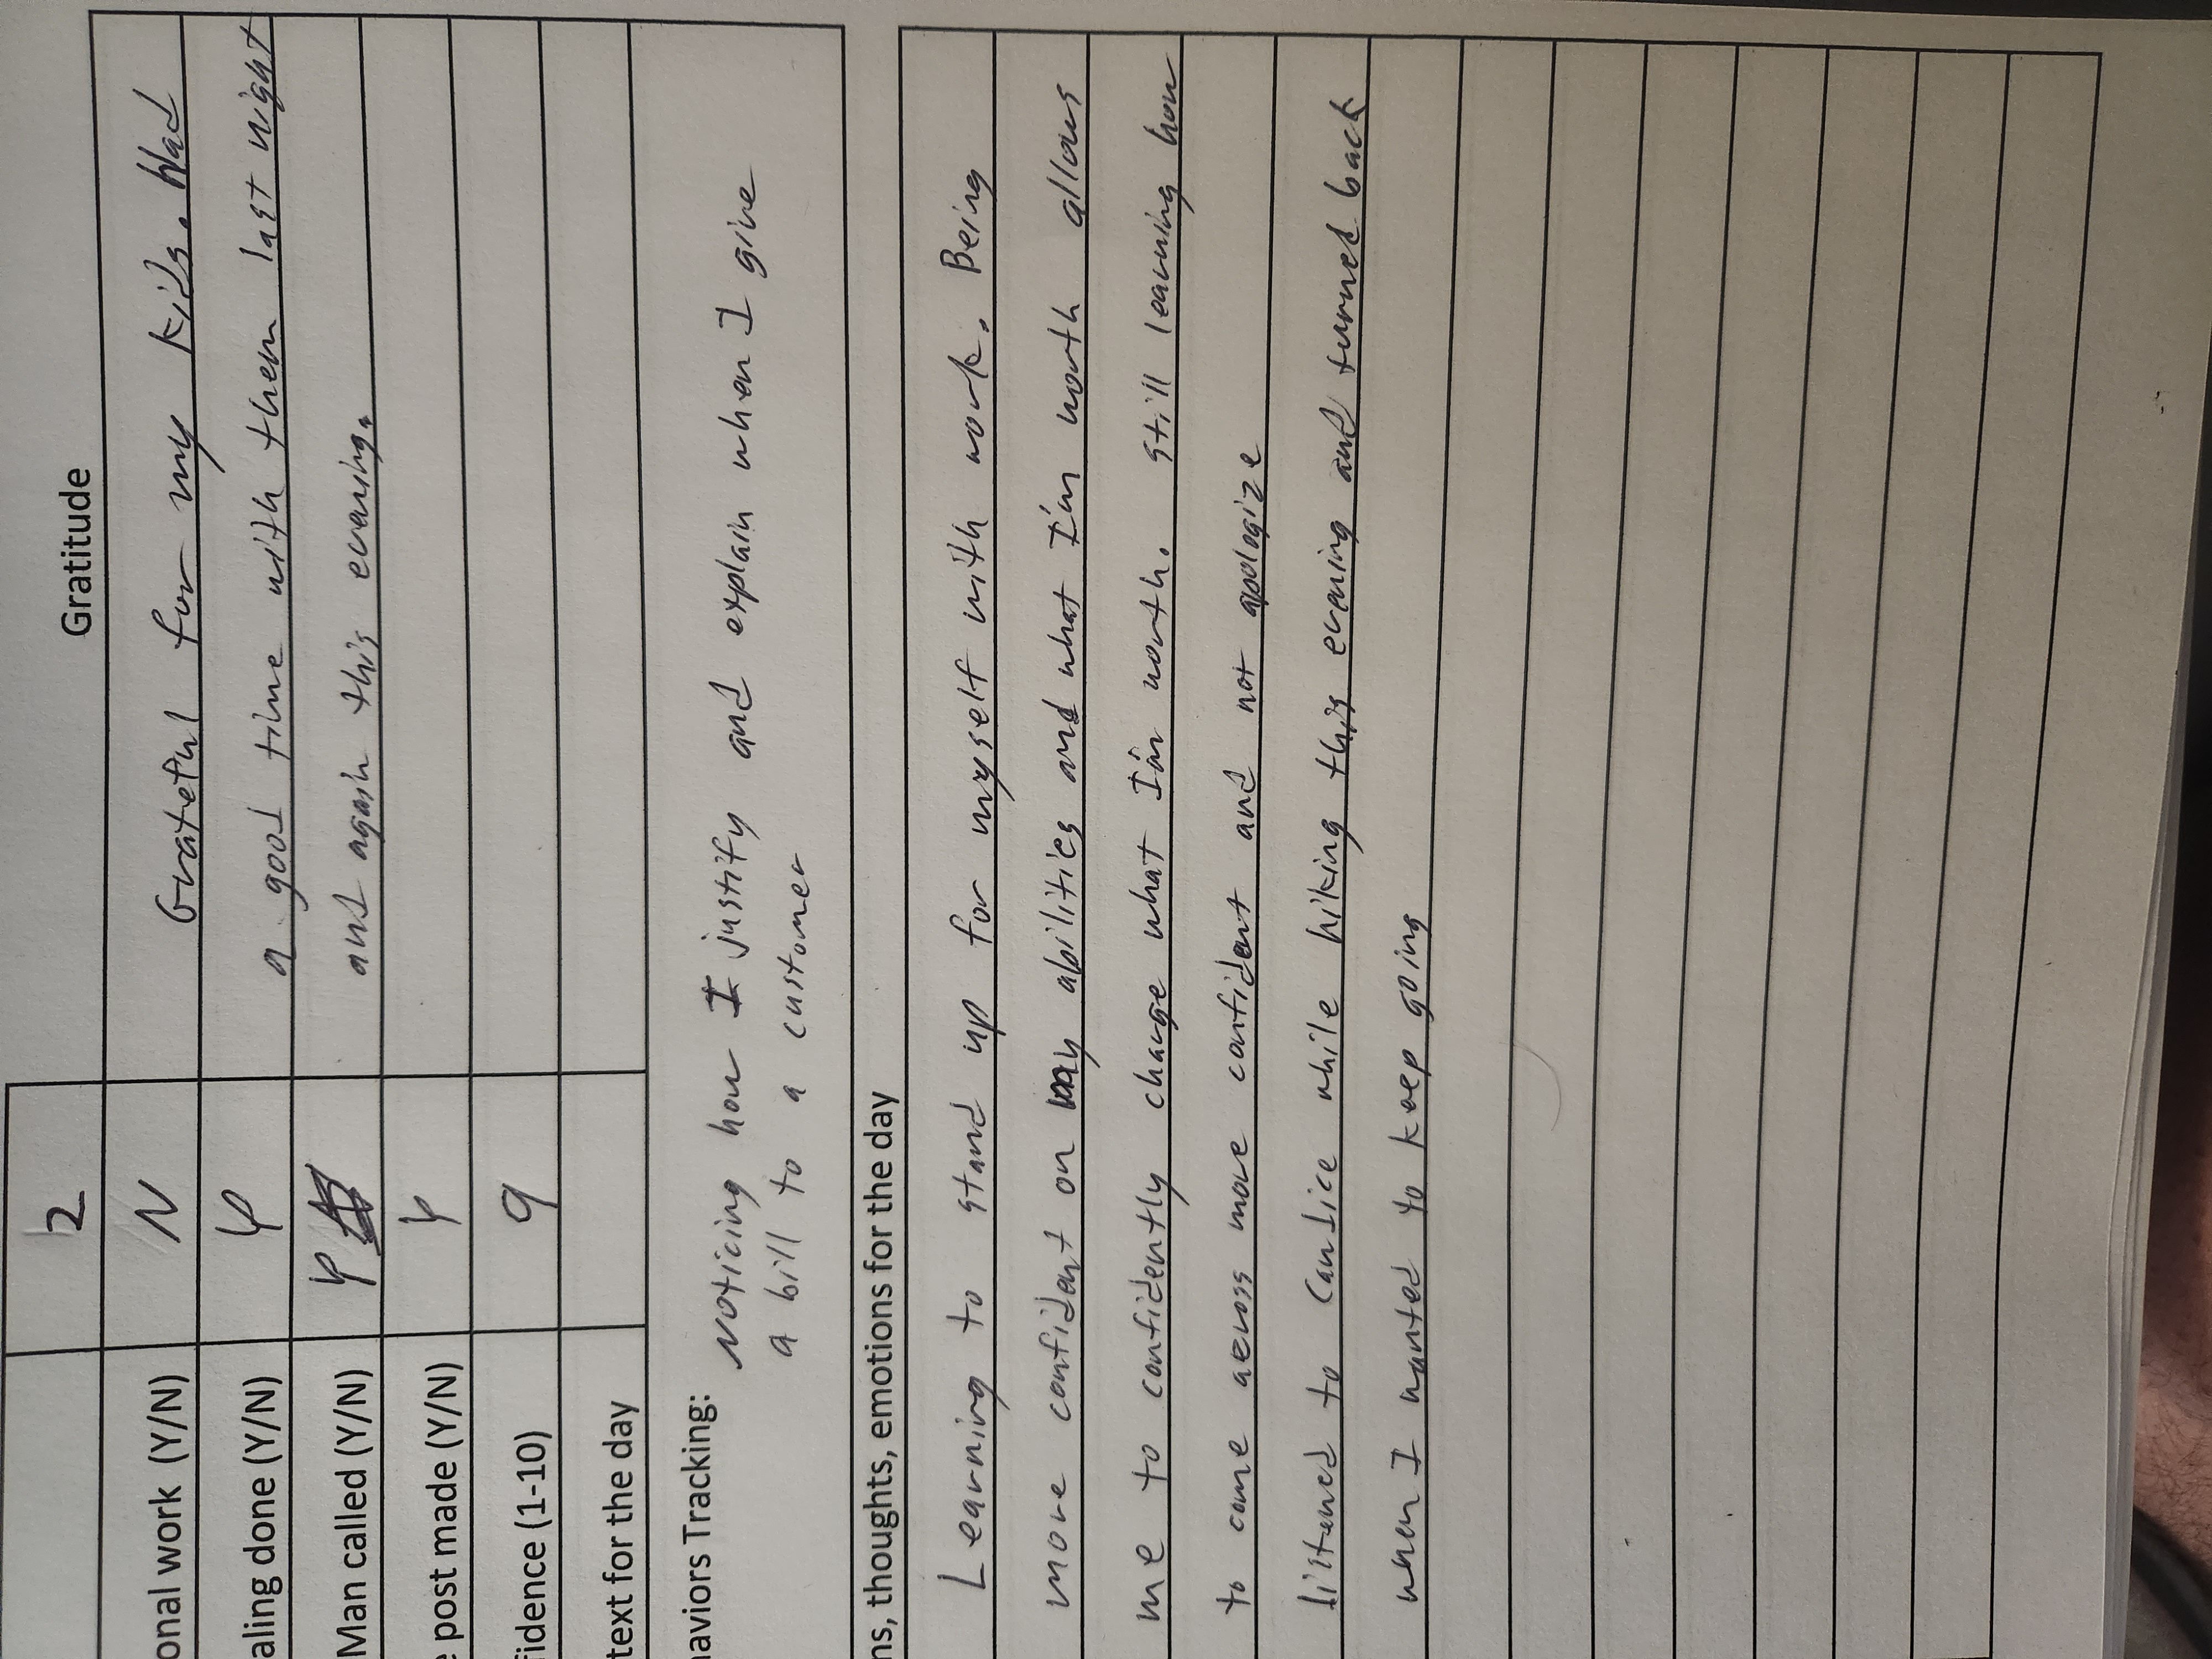 Gratitude
2
onal work (Y/N) N Grateful for my kids. Had
aling done (Y/N) Y a good time with them last night
Man called (Y/N) Y and again this evening.
e post made (Y/N) Y
fidence (1-10) 9
text for the day
haviors Tracking: Noticing how I justify and explain when I give
a bill to a customer
ns, thoughts, emotions for the day
Learning to stand up for myself with work. Being
more confident on my abilities and what I'm worth allows
me to confidently charge what I'm worth. Still learning how
to come across more confident and not apologize
Listened to Candice while hiking this evening and turned back
when I wanted to keep going